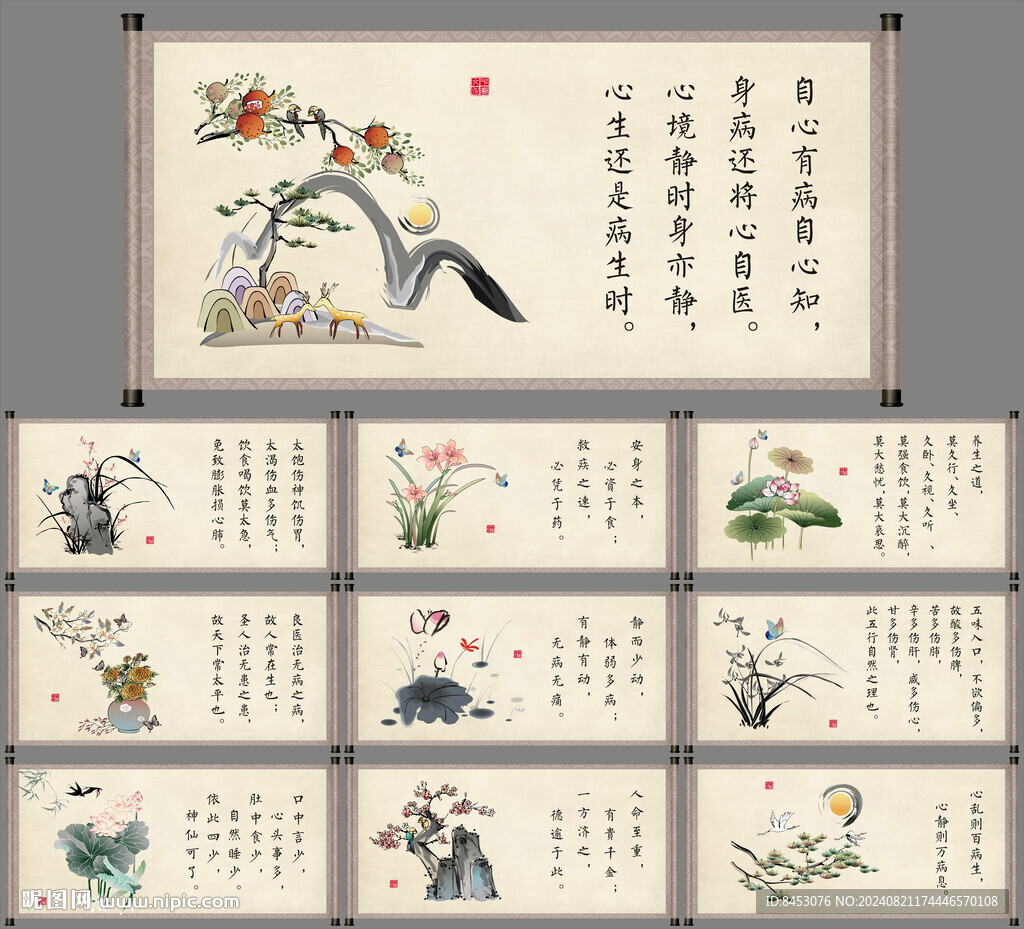 自心有病自心知，
身病还将心自医。
心境静时身亦静，
心生还是病生时。
太饱伤神饥伤胃，
太渴伤血多伤气；
饮食喝饮莫太急，
免致膨胀损心肺。
安身之本，
必资于食；
救疾之速，
必凭于药。
养生之道，
莫久行、久坐、
久卧、久视、久听、
莫强食饮，莫大沉醉，
莫大愁忧，莫大哀思。
良医治无病之病，
故人常在生也；
圣人治无患之患，
故天下常太平也。
静而少动，
体弱多病；
有静有动，
无病无痛。
五味入口，不欲偏多，
故酸多伤脾，
苦多伤肺，
辛多伤肝，咸多伤心，
甘多伤肾，
此五行自然之理也。
口中言少，
心头事多，
肚中食少，
自然睡少。
依此四少，
神仙可了。
人命至重，
有贵千金；
一方济之，
德逾于此。
心乱则百病生，
心静则万病息。
昵图网 www.nipic.com
ID:8453076 NO:20240821174446570108